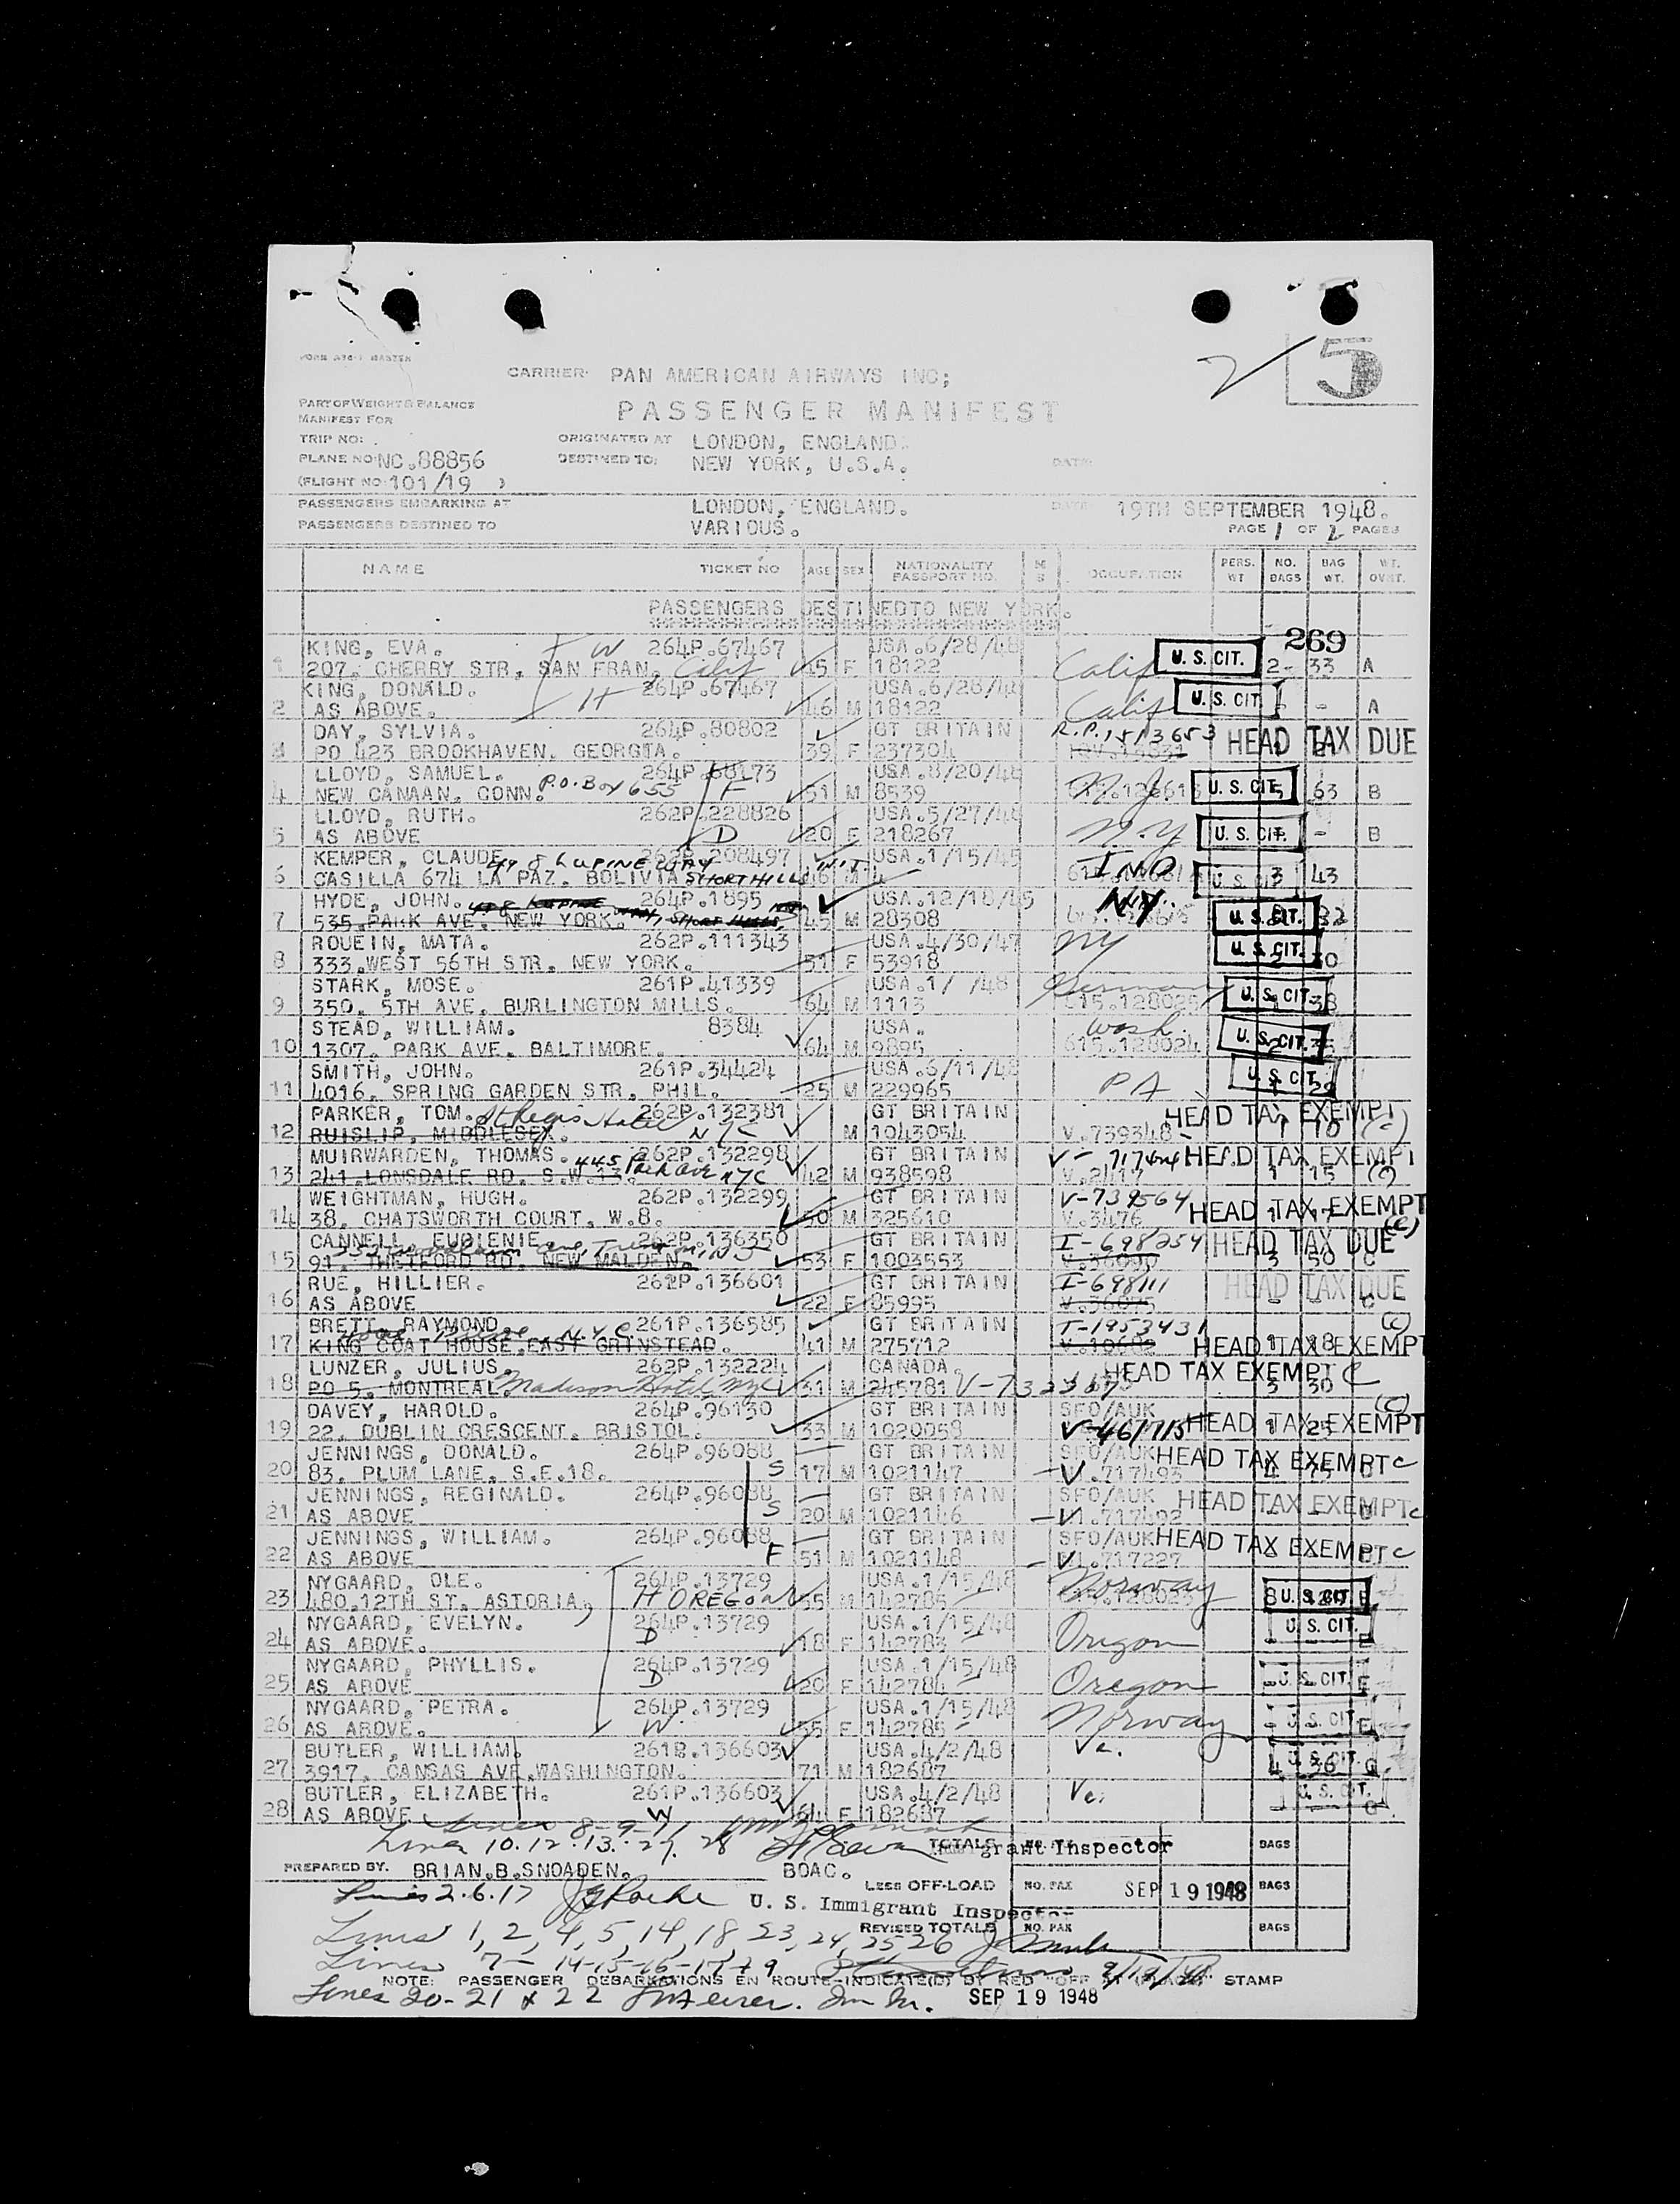 FORM ATC-1 MASTEN
2/ 5
CARRIER: PAN AMERICAN AIRWAYS INC;
PART OF WEIGHT & BALANCE
MANIFEST FOR
PASSENGER MANIFEST
TRIP NO:
ORIGINATED AT LONDON, ENGLAND.
PLANE NO: NC.88856
DESTINED TO: NEW YORK, U.S.A.
DATE:
(FLIGHT NO: 101/19 )
PASSENGERS EMBARKING AT LONDON, ENGLAND. DATE: 19TH SEPTEMBER 1948.
PASSENGERS DESTINED TO VARIOUS. PAGE 1 OF 2 PAGES
NAME TICKET NO AGE SEX NATIONALITY PASSPORT NO. M S OCCUPATION PERS. WT NO. BAGS BAG WT. WT. OVRT.
PASSENGERS DESTINEDTO NEW YORK.
269
KING, EVA. W 264P.67467 USA.6/28/48 U. S. CIT.
1 207. CHERRY STR, SAN FRAN, Calif 45 F 18122 Calif 2- 33 A
KING, DONALD. H 264P.67467 USA.6/28/48 U. S. CIT.
2 AS ABOVE. 46 M 18122 Calif - - A
DAY, SYLVIA. 264P.80802 GT BRITAIN R.P.1513653 HEAD TAX DUE
3 PO 423 BROOKHAVEN. GEORGIA. 39 F 237304
LLOYD, SAMUEL. 264P.68173 USA.8/20/48
4 NEW CANAAN. CONN. P.O. Box 655 F 51 M 8539 N. J. U. S. CIT. 63 B
LLOYD, RUTH. 262P.228826 USA.5/27/48
5 AS ABOVE D 20 F 218267 N.Y U. S. CIT. - B
KEMPER, CLAUDE 208497 USA.1/15/45 IND
6 CASILLA 674 LA PAZ. BOLIVIA SHORT HILLS 46 M 4 U. S. CIT. 3 43
HYDE, JOHN. 264P.1895 USA.12/18/45 NY
7 535.PARK AVE. NEW YORK. 45 M 28308 U. S. CIT. 32
ROUEIN, MATA. 262P.111343 USA.4/30/47 NY
8 333.WEST 56TH STR, NEW YORK. 51 F 53918 U. S. CIT.
STARK, MOSE. 261P.41339 USA.1/ /48 German
9 350. 5TH AVE. BURLINGTON MILLS. 64 M 1113 615.128025 U. S. CIT. 38
STEAD, WILLIAM. 8384 USA. Wash.
10 1307. PARK AVE. BALTIMORE. 64 M 9895 615.128024 U. S. CIT.
SMITH, JOHN. 261P.34424 USA.6/11/48
11 4016. SPRING GARDEN STR. PHIL. 25 M 229965 PA U. S. CIT.
PARKER, TOM. St Regis Hotel 262P.132381 GT BRITAIN HEAD TAX EXEMPT
12 RUISLIP. MIDDLESEX. NYC M 1043054 V.739348 (c)
MUIRWARDEN, THOMAS. 445 Park Ave NYC 262P.132298 GT BRITAIN HEAD TAX EXEMPT
13 241.LONSDALE RD. S.W.13. 42 M 938598 V.2417 1 15 (c)
WEIGHTMAN, HUGH. 262P.132299 GT BRITAIN V-739564
14 38. CHATSWORTH COURT. W.8. 50 M 325610 V.3476 HEAD TAX EXEMPT (c)
CANNELL, EUGIENIE 262P.136350 GT BRITAIN I-698254 HEAD TAX DUE
15 91. THETFORD RD. NEW MALDEN. 53 F 1003553 3 50 C
RUE, HILLIER. 262P.136601 GT BRITAIN I-698111 HEAD TAX DUE
16 AS ABOVE 22 F 85995 - - C
BRETT, RAYMOND 261P.136585 GT BRITAIN I-1953431 (c)
17 KING COAT HOUSE.EAST GRINSTEAD. 41 M 275712 HEAD TAX EXEMPT
LUNZER, JULIUS. 262P.132224 CANADA. HEAD TAX EXEMPT C
18 PO 5. MONTREAL Madison Hotel NYC 31 M 245781 3 30
DAVEY, HAROLD. 264P.96130 GT BRITAIN SFO/AUK (c)
19 22. DUBLIN CRESCENT. BRISTOL. 33 M 1020058 V-461715 HEAD TAX EXEMPT
JENNINGS, DONALD. 264P.96088 GT BRITAIN SFO/AUK HEAD TAX EXEMPT C
20 83. PLUM LANE. S.E.18. S 17 M 1021147 V.717493
JENNINGS, REGINALD. 264P.96088 GT BRITAIN SFO/AUK HEAD TAX EXEMPT C
21 AS ABOVE S 20 M 1021146 V.717492
JENNINGS, WILLIAM. 264P.96088 GT BRITAIN SFO/AUK HEAD TAX EXEMPT C
22 AS ABOVE F 51 M 1021148 V.717227
NYGAARD, OLE. 264P.13729 USA.1/15/48 Norway
23 480.12TH ST. ASTORIA, H OREGON 55 M 142785 U. S. CIT. E
NYGAARD, EVELYN. 264P.13729 USA.1/15/48 U. S. CIT.
24 AS ABOVE. D 18 F 142783 Oregon E
NYGAARD, PHYLLIS. 264P.13729 USA.1/15/48
25 AS ABOVE D 20 F 142784 Oregon U. S. CIT. E
NYGAARD, PETRA. 264P.13729 USA.1/15/48
26 AS ABOVE. W 55 F 142785 Norway U. S. CIT. E
BUTLER, WILLIAM. 261P.136603 USA.4/2/48 Va.
27 3917. CANSAS AVE.WASHINGTON. 71 M 182687 4 36 U. S. CIT. G
BUTLER, ELIZABETH. 261P.136603 USA.4/2/48 Va. U. S. CIT.
28 AS ABOVE W 64 F 182687
Lines 8-9-11
Lines 10.12.13.27.28 TOTALS Immigrant Inspector BAGS
PREPARED BY. BRIAN.B.SNOADEN. BOAC.
LESS OFF-LOAD NO. PAX SEP 19 1948 BAGS
Lines 2.6.17 U. S. Immigrant Inspector
REVISED TOTALS NO. PAX BAGS
Lines 1, 2, 4, 5, 14, 18 23, 24, 25 26
Lines 7- 14-15-16-17+9 9/19/48
NOTE: PASSENGER DEBARKATIONS EN ROUTE-INDICATE(D) BY RED "OFF AT (PLACE)" STAMP
Lines 20-21 & 22 SEP 19 1948